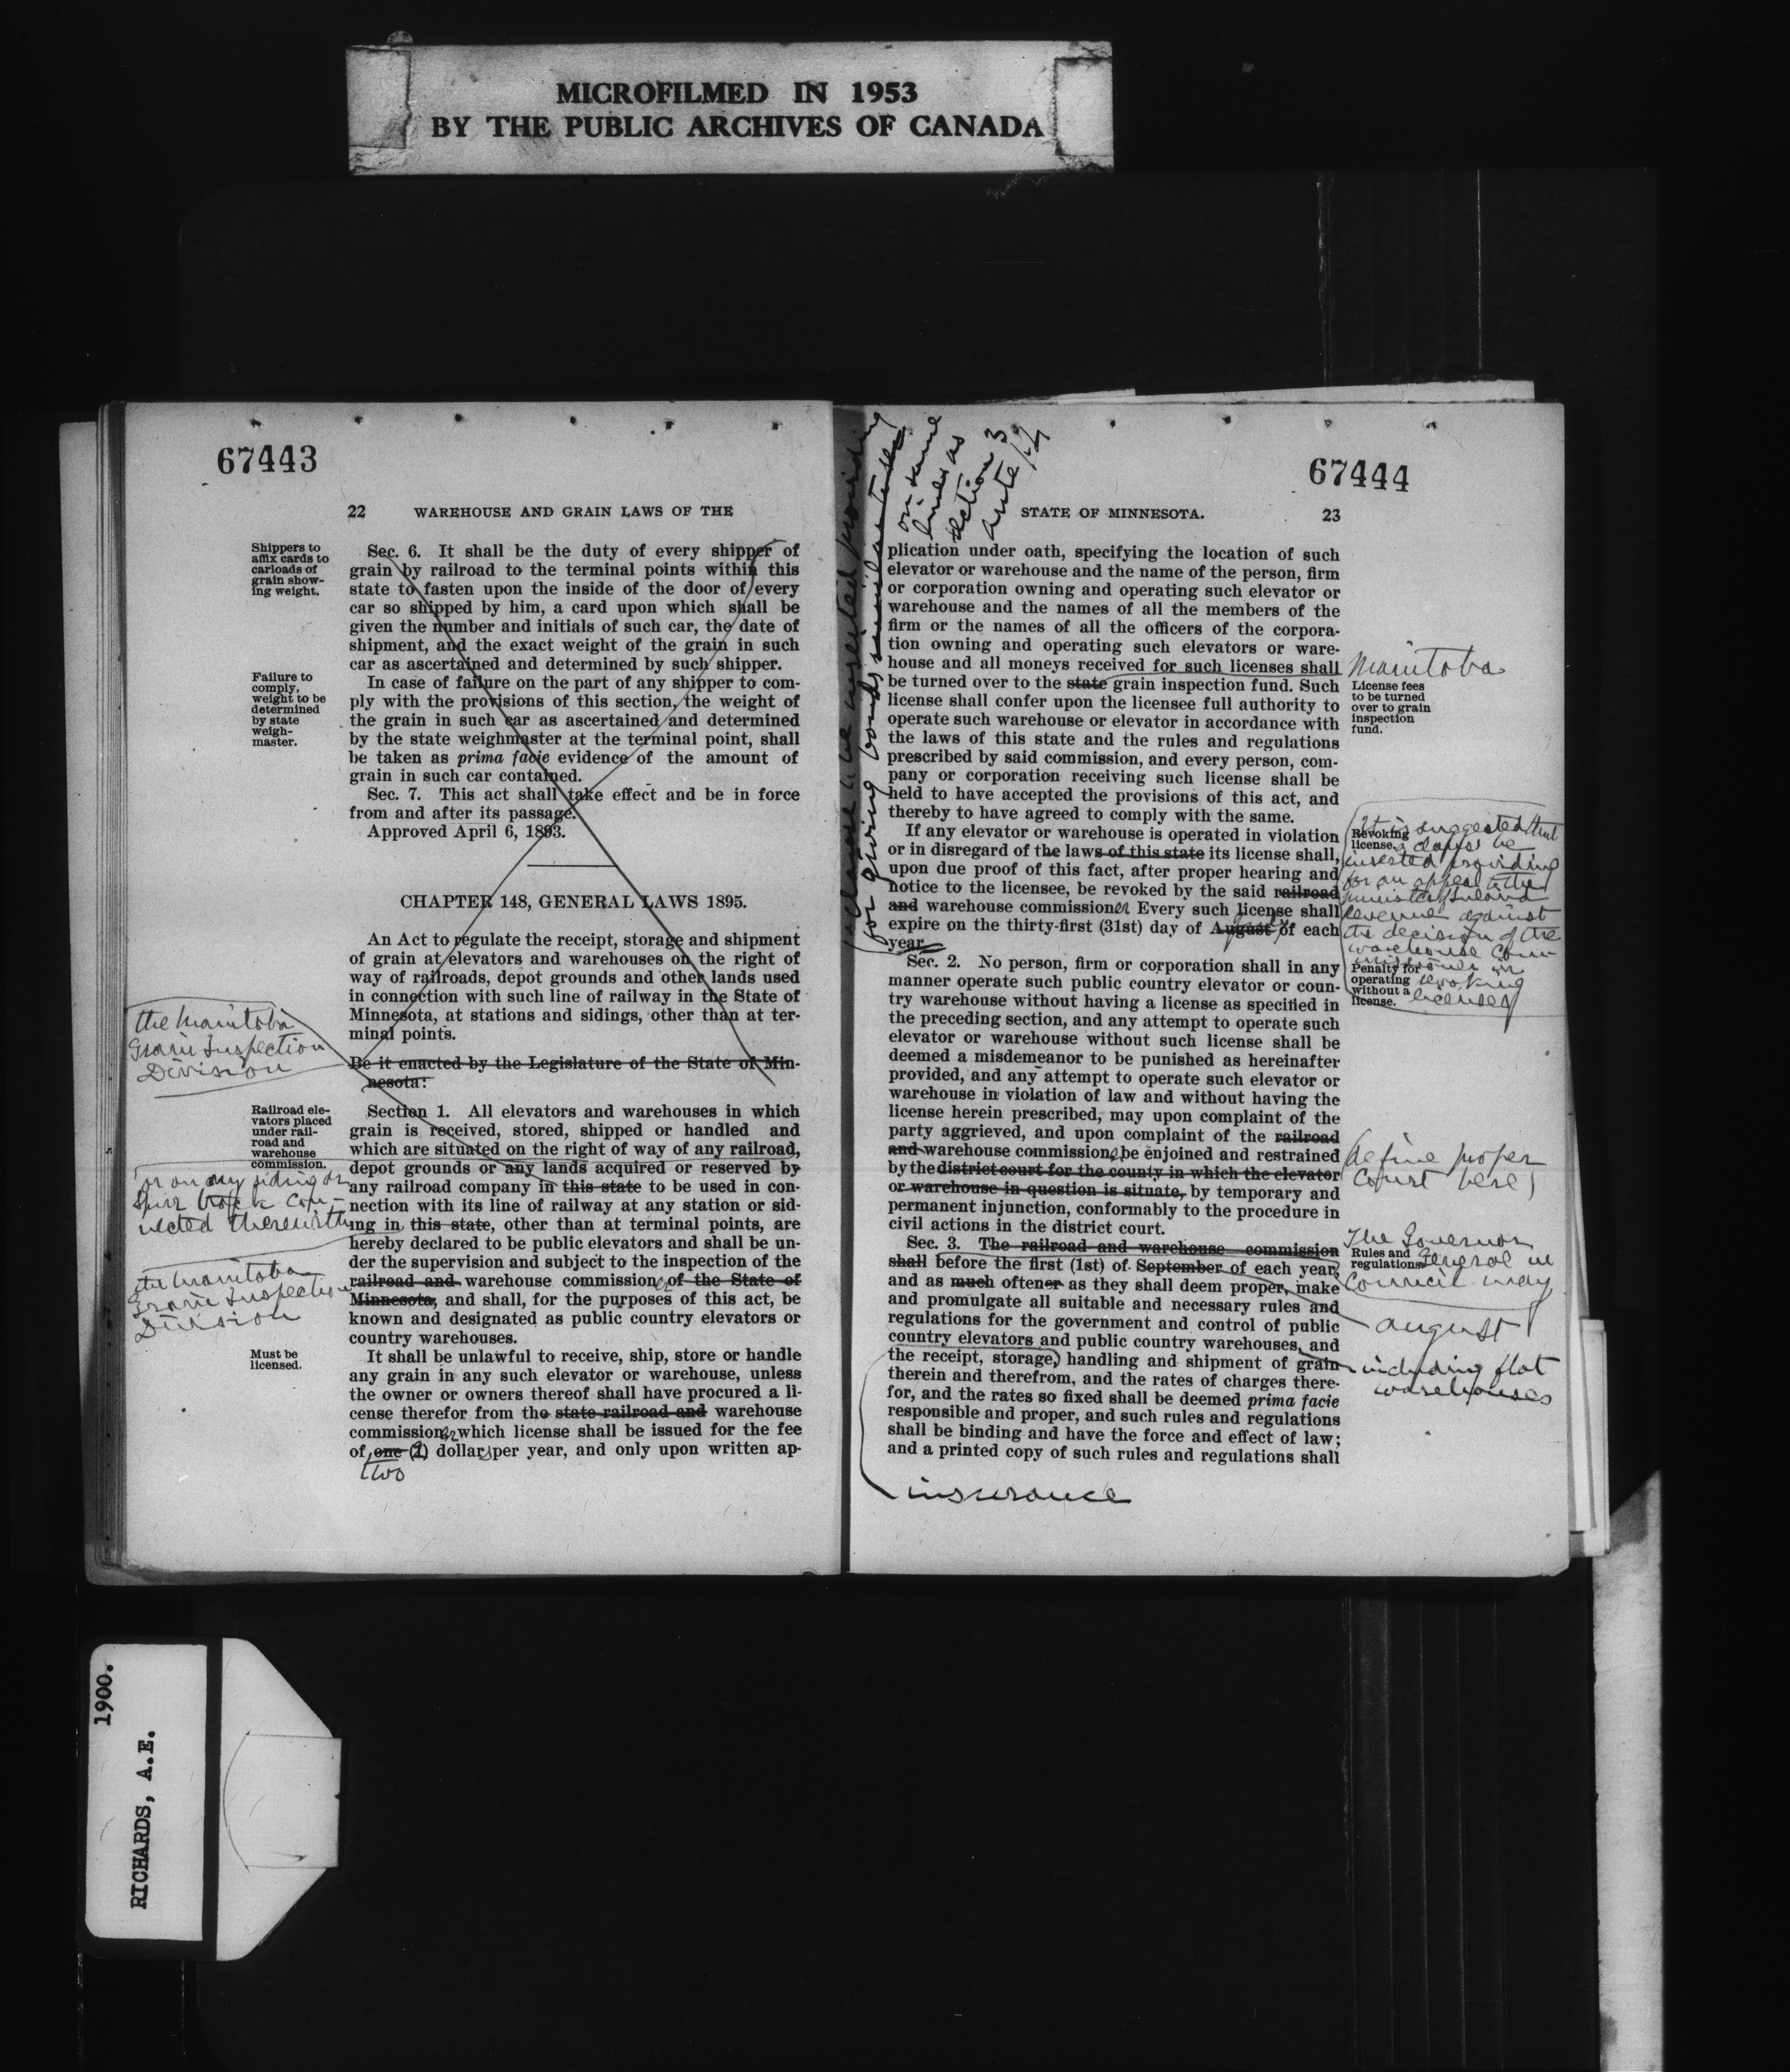 MICROFILMED IN 1953
BY THE PUBLIC ARCHIVES OF CANADA
67443
22 WAREHOUSE AND GRAIN LAWS OF THE
Shippers to
affix cards to
carloads of
grain show-
ing weight.
Sec. 6. It shall be the duty of every shipper of
grain by railroad to the terminal points within this
state to fasten upon the inside of the door of every
car so shipped by him, a card upon which shall be
given the number and initials of such car, the date of
shipment, and the exact weight of the grain in such
car as ascertained and determined by such shipper.
Failure to
comply,
weight to be
determined
by state
weigh-
master.
In case of failure on the part of any shipper to com-
ply with the provisions of this section, the weight of
the grain in such car as ascertained and determined
by the state weighmaster at the terminal point, shall
be taken as prima facie evidence of the amount of
grain in such car contained.
Sec. 7. This act shall take effect and be in force
from and after its passage.
Approved April 6, 1893.
CHAPTER 148, GENERAL LAWS 1895.
An Act to regulate the receipt, storage and shipment
of grain at elevators and warehouses on the right of
way of railroads, depot grounds and other lands used
in connection with such line of railway in the State of
Minnesota, at stations and sidings, other than at ter-
minal points.
the Manitoba
Grain Inspection
Division
Be it enacted by the Legislature of the State of Min-
nesota:
Railroad ele-
vators placed
under rail-
road and
warehouse
commission.
Section 1. All elevators and warehouses in which
grain is received, stored, shipped or handled and
which are situated on the right of way of any railroad,
depot grounds or any lands acquired or reserved by
any railroad company in this state to be used in con-
nection with its line of railway at any station or sid-
ing in this state, other than at terminal points, are
hereby declared to be public elevators and shall be un-
der the supervision and subject to the inspection of the
railroad and warehouse commissioner of the State of
Minnesota, and shall, for the purposes of this act, be
known and designated as public country elevators or
country warehouses.
or on any siding or
spur track con-
nected therewith
the Manitoba
Grain Inspection
Division
Must be
licensed.
It shall be unlawful to receive, ship, store or handle
any grain in any such elevator or warehouse, unless
the owner or owners thereof shall have procured a li-
cense therefor from the state railroad and warehouse
commissioner which license shall be issued for the fee
of one (2) dollars per year, and only upon written ap-
two
67444
STATE OF MINNESOTA. 23
on same
lines as
section 3
ante 14
clause to be inserted providing
for giving bonds
plication under oath, specifying the location of such
elevator or warehouse and the name of the person, firm
or corporation owning and operating such elevator or
warehouse and the names of all the members of the
firm or the names of all the officers of the corpora-
tion owning and operating such elevators or ware-
house and all moneys received for such licenses shall
be turned over to the state grain inspection fund. Such
license shall confer upon the licensee full authority to
operate such warehouse or elevator in accordance with
the laws of this state and the rules and regulations
prescribed by said commission, and every person, com-
pany or corporation receiving such license shall be
held to have accepted the provisions of this act, and
thereby to have agreed to comply with the same.
Manitoba
License fees
to be turned
over to grain
inspection
fund.
If any elevator or warehouse is operated in violation
or in disregard of the laws of this state its license shall,
upon due proof of this fact, after proper hearing and
notice to the licensee, be revoked by the said railroad
and warehouse commissioner Every such license shall
expire on the thirty-first (31st) day of August of each
year.
July
Revoking
license.
It is suggested that
a clause be
inserted providing
for an appeal to the
Minister of Inland
Revenue against
the decision of the
warehouse Com-
missioner in
revoking
licenses
Penalty for
operating
without a
license.
Sec. 2. No person, firm or corporation shall in any
manner operate such public country elevator or coun-
try warehouse without having a license as specified in
the preceding section, and any attempt to operate such
elevator or warehouse without such license shall be
deemed a misdemeanor to be punished as hereinafter
provided, and any attempt to operate such elevator or
warehouse in violation of law and without having the
license herein prescribed, may upon complaint of the
party aggrieved, and upon complaint of the railroad
and warehouse commissioner be enjoined and restrained
by the district court for the county in which the elevator
or warehouse in question is situate, by temporary and
permanent injunction, conformably to the procedure in
civil actions in the district court.
define proper
Court here
Sec. 3. The railroad and warehouse commission
shall before the first (1st) of September of each year,
and as much oftener as they shall deem proper, make
and promulgate all suitable and necessary rules and
regulations for the government and control of public
country elevators and public country warehouses, and
the receipt, storage, handling and shipment of grain
therein and therefrom, and the rates of charges there-
for, and the rates so fixed shall be deemed prima facie
responsible and proper, and such rules and regulations
shall be binding and have the force and effect of law;
and a printed copy of such rules and regulations shall
The Governor
General in
Council may
Rules and
regulations.
August
including flat
warehouses
insurance
1900.
RICHARDS, A.E.